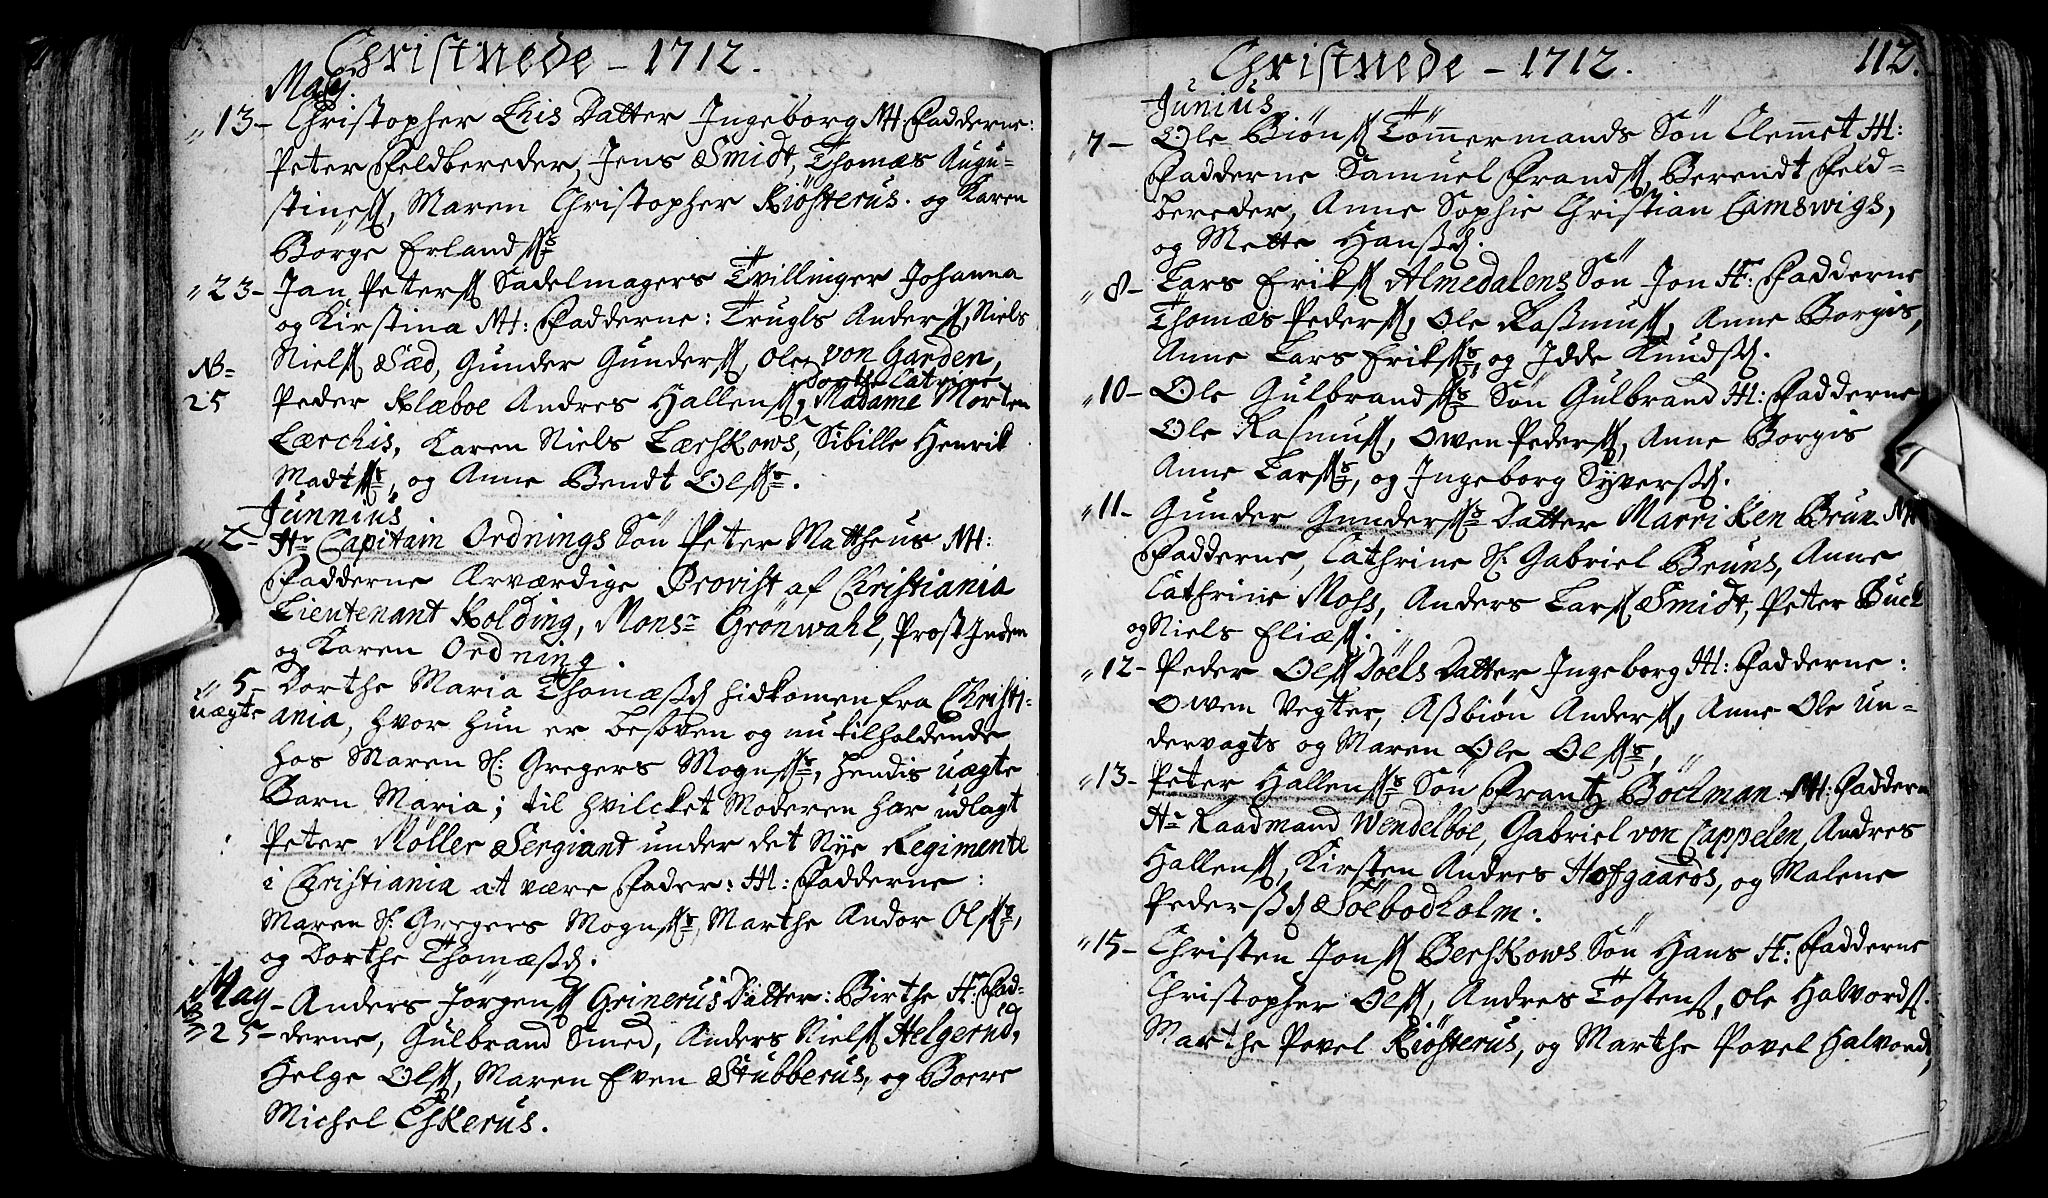 Christnede - 1712.
Maij.
13 - Christopher Ehis Datter Ingebòrg NH: Fadderne:
Peter Feldbereder, Jens Smidt, Thomæs Augu-
stines, Maren Christopher Kiösterus. og Karen
Börge Erlands
23 - Jan Peters Sadelmagers Tvillinger Johanna
og Kirstina NH: Fadderne: Trugls Anders, Niels
NB= Niels Sæd, Gunder Gunders, Ole von Garden,
Dorthe Catrine
25 Peder Klæboe Andres Hallens, Madame Morten
Lærchis, Karen Niels Lærskows, Sibille Henrik
Madts, og Anne Bendt Ols.
Junnius
2 - Hr Capitain Ordnings Sön Peter Mattheus NH:
Fadderne Ærværdige Provist af Christiania
Lieutenant Kolding, Monsr Grönwahl, Prost Inden
og Karen Ordning.
5 - Dorthe Maria Thomæsd hidkomen fra Christi-
uægte ania, hvor hun er besoven og nu tilholdende
hos Maren Sl: Gregers Mogns, hendis uægte
Barn Maria; til hvilcket Moderen har udlagt
Peter Møller Sergiant under det Nye Regimente
i Christiania at være Fader: H: Fadderne:
Maren Sl: Gregers Mogns, Marthe Andor Ols,
og Dorthe Thomæsd.
May - Anders Jörgens Grinerus Datter: Birthe H: Fad-
25 - derne, Gulbrand Smed, Anders Niels Helgerud,
Helge Ols, Maren Even Stubberus, og Boere
Michel Eskerus.
Christnede - 1712. 112.
Junius
7 - Ole Biöns Tömmermands Sön Clemmet H:
Fadderne Samuel Frands, Berendt Feld-
bereder, Anne Sophie Christian Camswigs,
og Mette Hansd.
8 - Lars Eriks Almedalens Sön Jon H: Fadderne
Thomæs Peders, Ole Rasmus, Anne Borgis,
Anne Lars Eriks, og Idde Knudsd.
10 - Ole Gulbrands Sön Gulbrand H: Fadderne
Ole Rasmus, Owen Peders, Anne Borgis
Anne Lars, og Ingeborg Syversd.
11 - Gunder Gunders Datter Marriken Brun NH
Fadderne, Cathrine Sl: Gabriel Bruns, Anne
Cathrine Moss, Anders Lars Smidt, Peter Buch
og Niels Eliæs.
12 - Peder Ols Döels Datter Ingeborg H: Fadderne:
Owen Vegter, Asbiön Anders, Anne Ole Un-
dervagts og Maren Ole Ols,
13 - Peter Hallens Sön Frantz Böelman NH: Faddern
Hr Raadmand Wendelboe, Gabriel von Cappelen, Andres
Hallens, Kirsten Andres Hofgaards, og Malene
Pedersd Söebodholm:
15 - Christen Jons Berskows Sön Hans H: Fadderne
Christopher Ols, Andres Tostens, Ole Halvords.
Marthe Povel Kiösterus, og Marthe Povel Halvords,